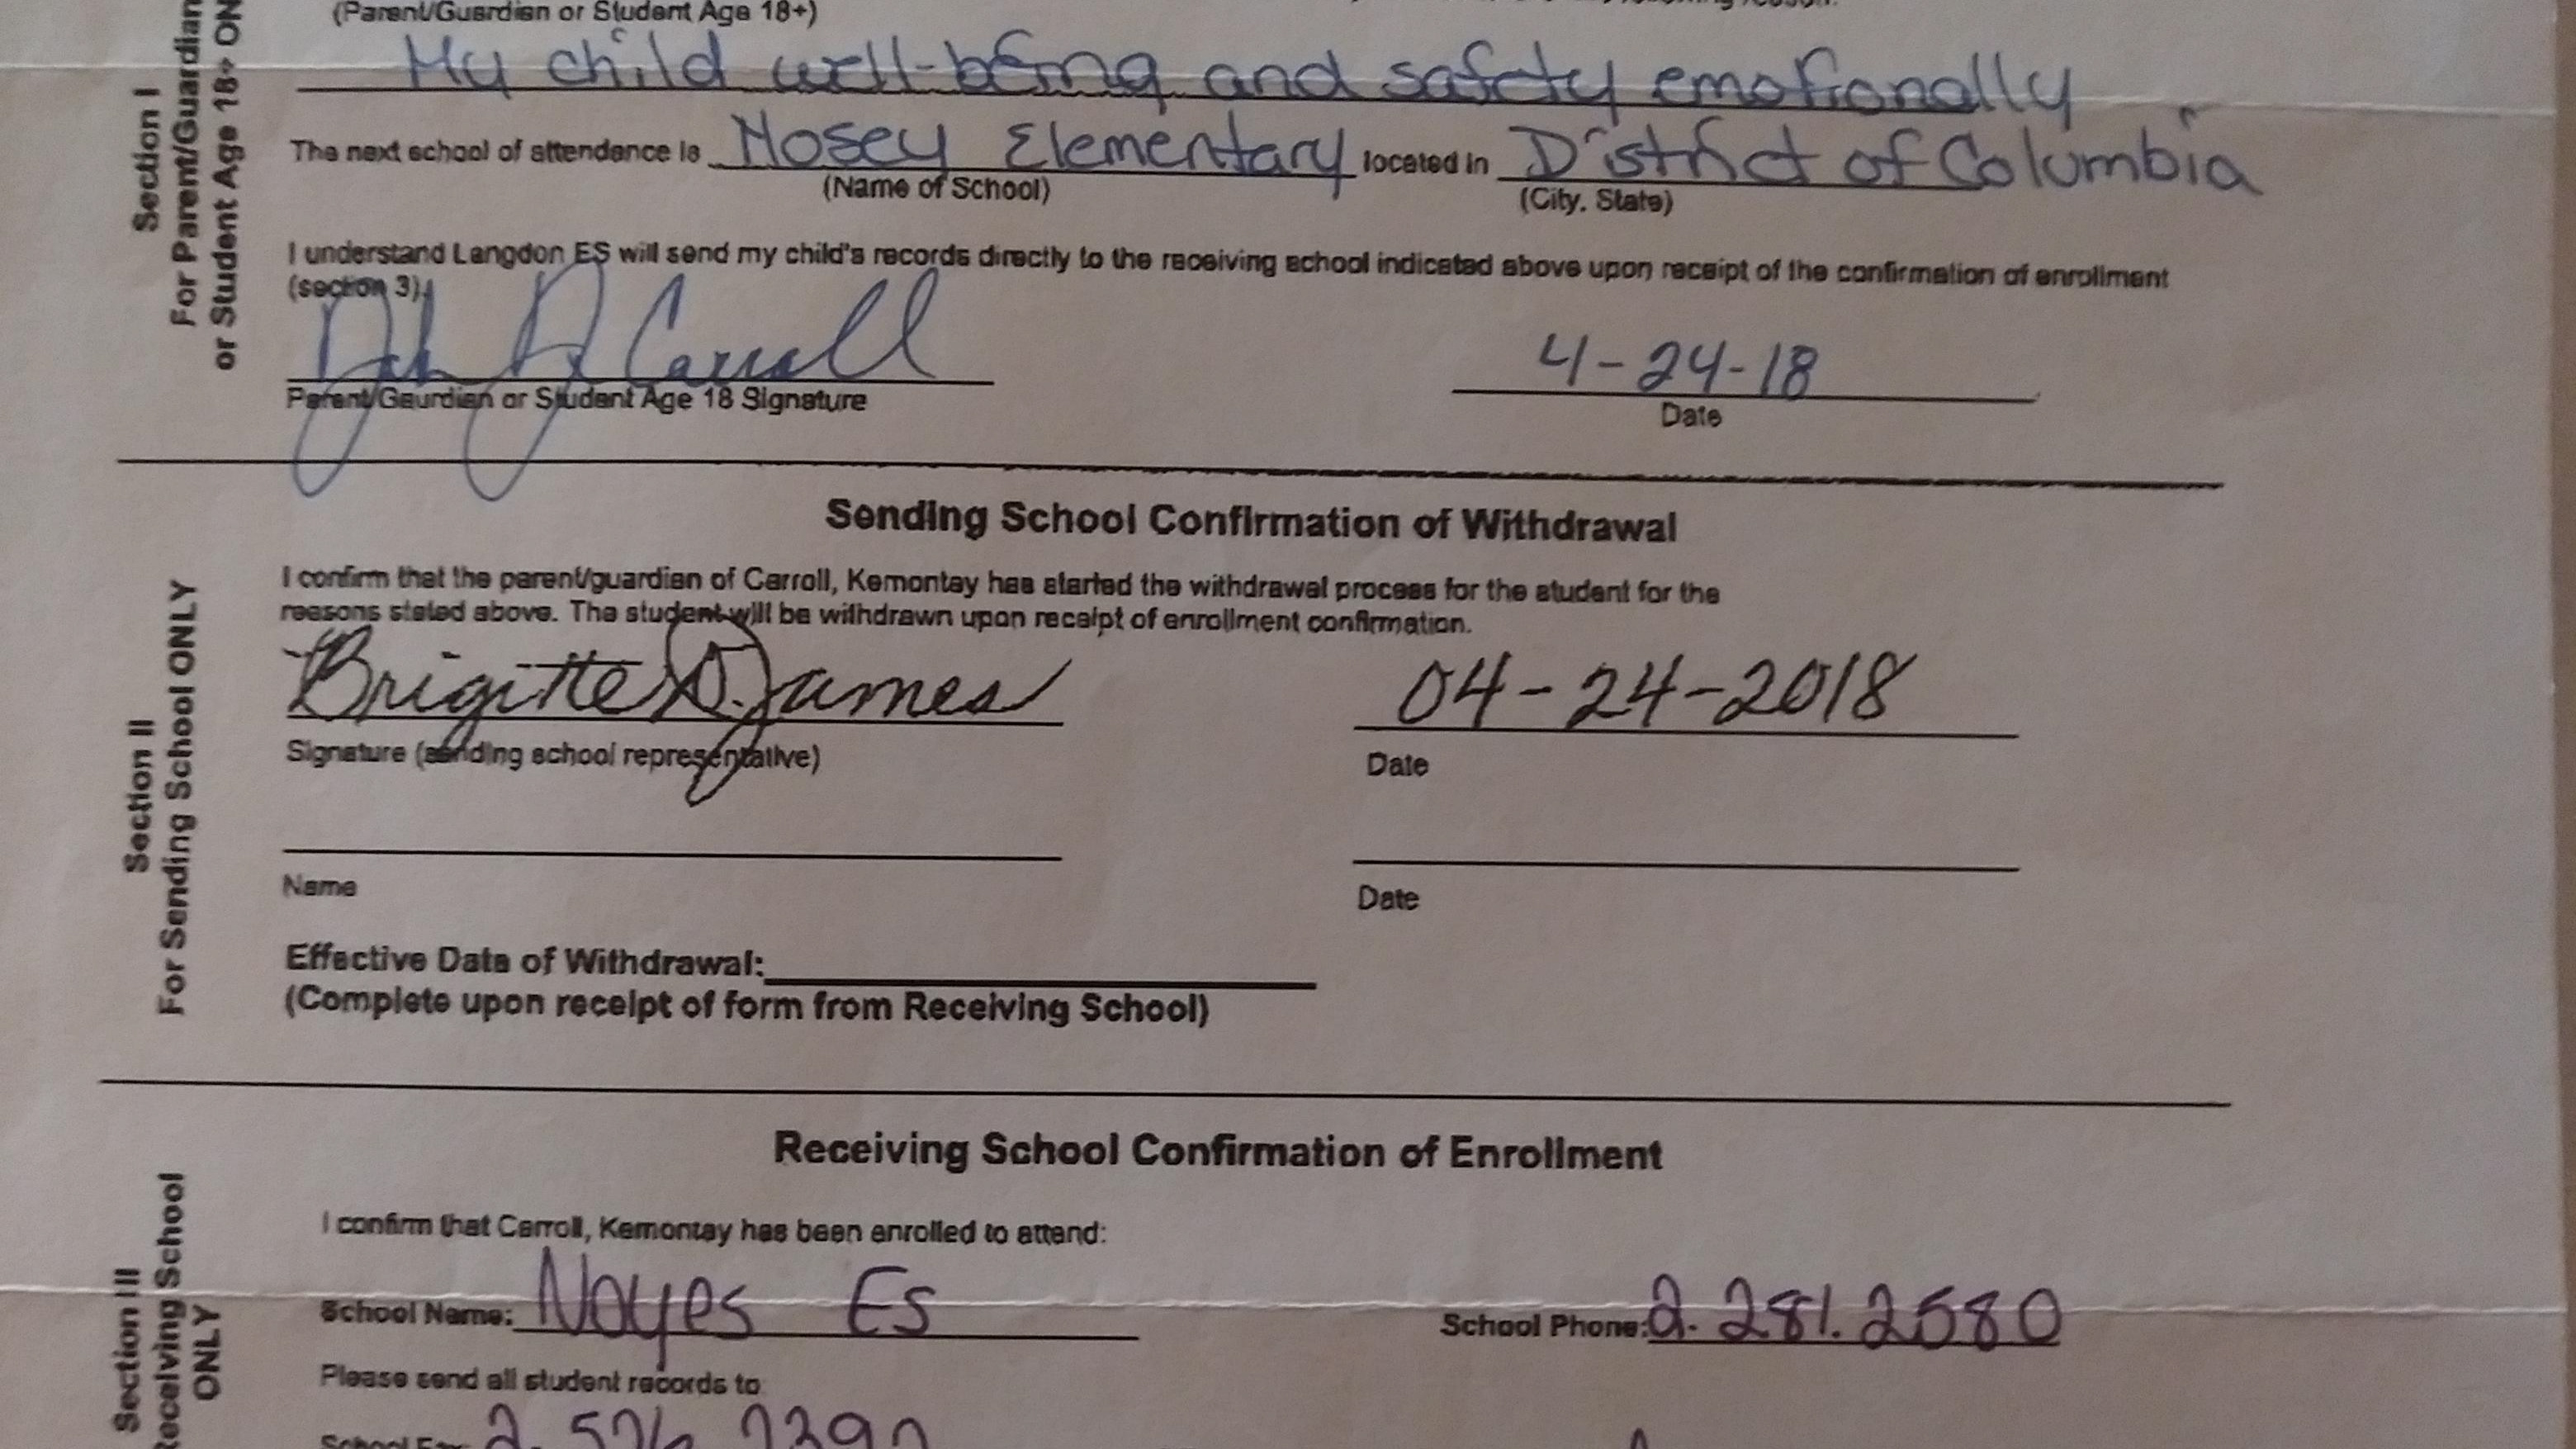 (Parent/Guardian or Student Age 18+)
My child well-being and safety emotionally
The next school of attendance is Nosey Elementary located in District of Columbia
(Name of School) (City, State)
I understand Langdon ES will send my child's records directly to the receiving school indicated above upon receipt of the confirmation of enrollment
(section 3).
Carroll 4-24-18
Parent/Gaurdian or Student Age 18 Signature Date
Section I
For Parent/Guardian
or Student Age 18+
Sending School Confirmation of Withdrawal
I confirm that the parent/guardian of Carroll, Kemontay has started the withdrawal process for the student for the
reasons stated above. The student will be withdrawn upon receipt of enrollment confirmation.
Brigitte D. James 04-24-2018
Signature (sending school representative) Date
Name Date
Effective Date of Withdrawal:
(Complete upon receipt of form from Receiving School)
Section II
For Sending School ONLY
Receiving School Confirmation of Enrollment
I confirm that Carroll, Kemontay has been enrolled to attend:
School Name: Noyes ES School Phone: 2. 281. 2580
Please send all student records to
Section III
Receiving School
ONLY